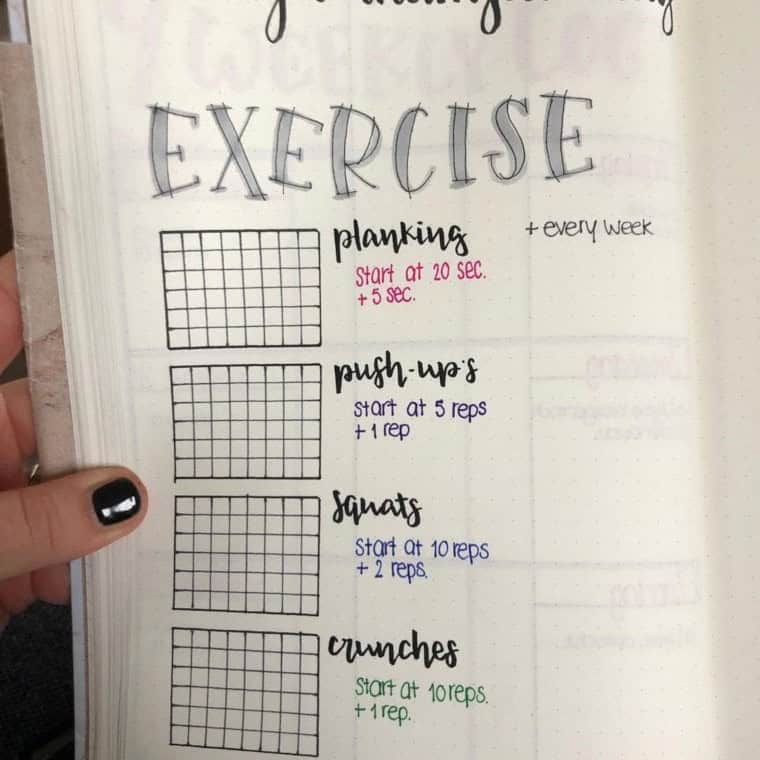 EXERCISE
planking + every week
Start at 20 sec.
+ 5 sec.
push-up's
Start at 5 reps
+ 1 rep
Squats
Start at 10 reps
+ 2 reps.
crunches
Start at 10 reps.
+ 1 rep.